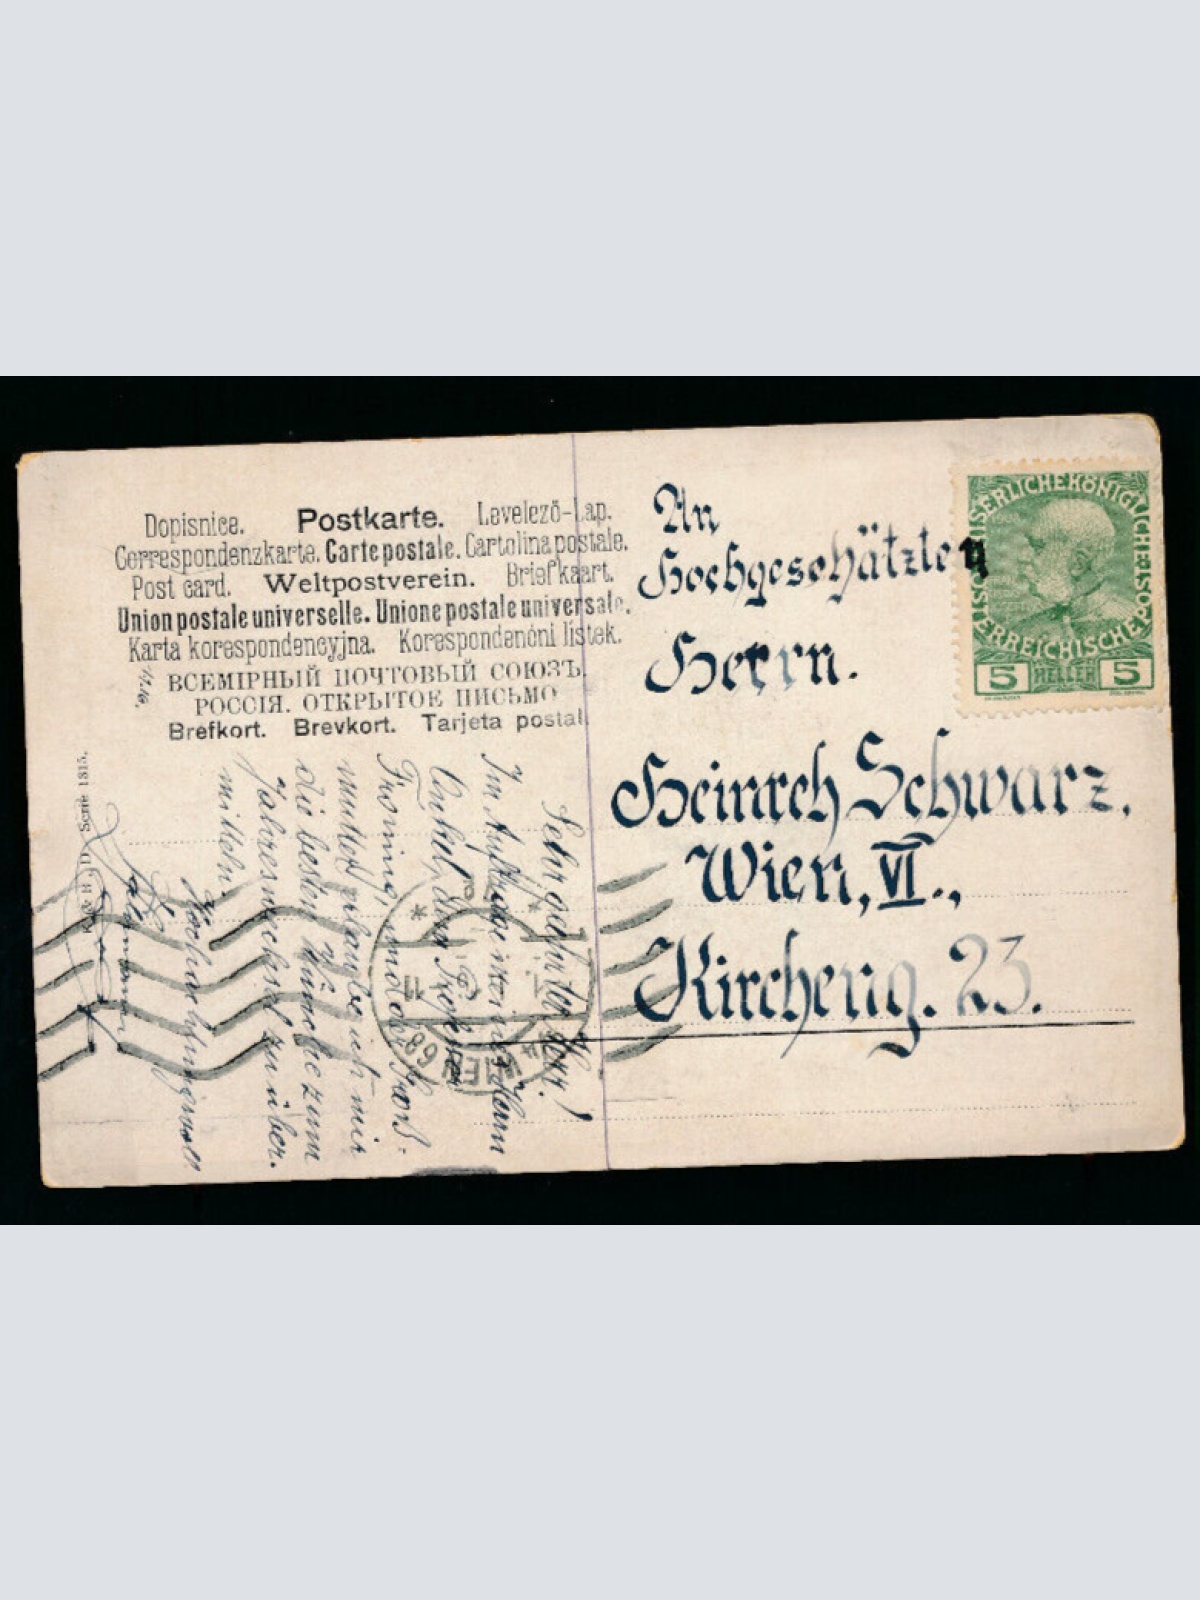 Dopisnice. Postkarte. Levelező-Lap.
Correspondenzkarte. Carte postale. Cartolina postale.
Post card. Weltpostverein. Briefkaart.
Union postale universelle. Unione postale universale.
Karta korespondencyjna. Korespondenční lístek.
ВСЕМІРНЫЙ ПОЧТОВЫЙ СОЮЗЪ.
РОССІЯ. ОТКРЫТОЕ ПИСЬМО
Brefkort. Brevkort. Tarjeta postal.
Serie 1315.
Sehr geehrter Herr!
Im Auftrage meines Herrn
Onkel,
und der Groß-
mutter erlaube ich mir
die besten Wünsche zum
Jahreswechsel zu über-
mitteln.
Hochachtungsvoll
WIEN
68
An
Hochgeschätzten
Herrn.
Heinrich Schwarz,
Wien, VI.,
Kircheng. 23.
KAISERLICHE KÖNIGLICHE ÖSTERREICHISCHE POST
5 HELLER 5